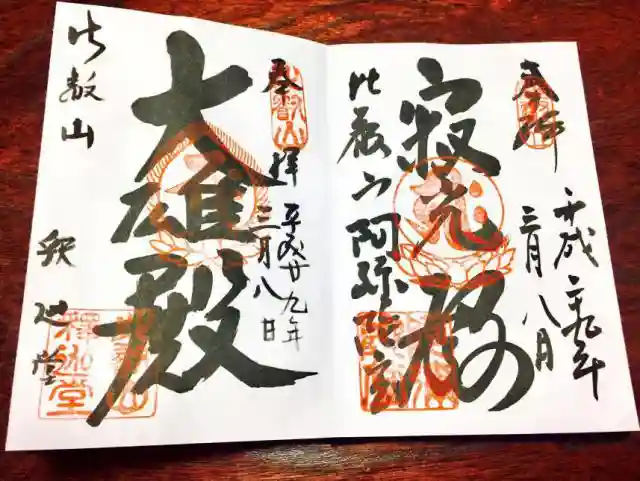 奉拝
平成二十九年
三月八日
寂光殿
比叡山阿弥陀堂
奉拝
平成廿九年
三月八日
大雄殿
比叡山
釈迦堂
釋迦堂